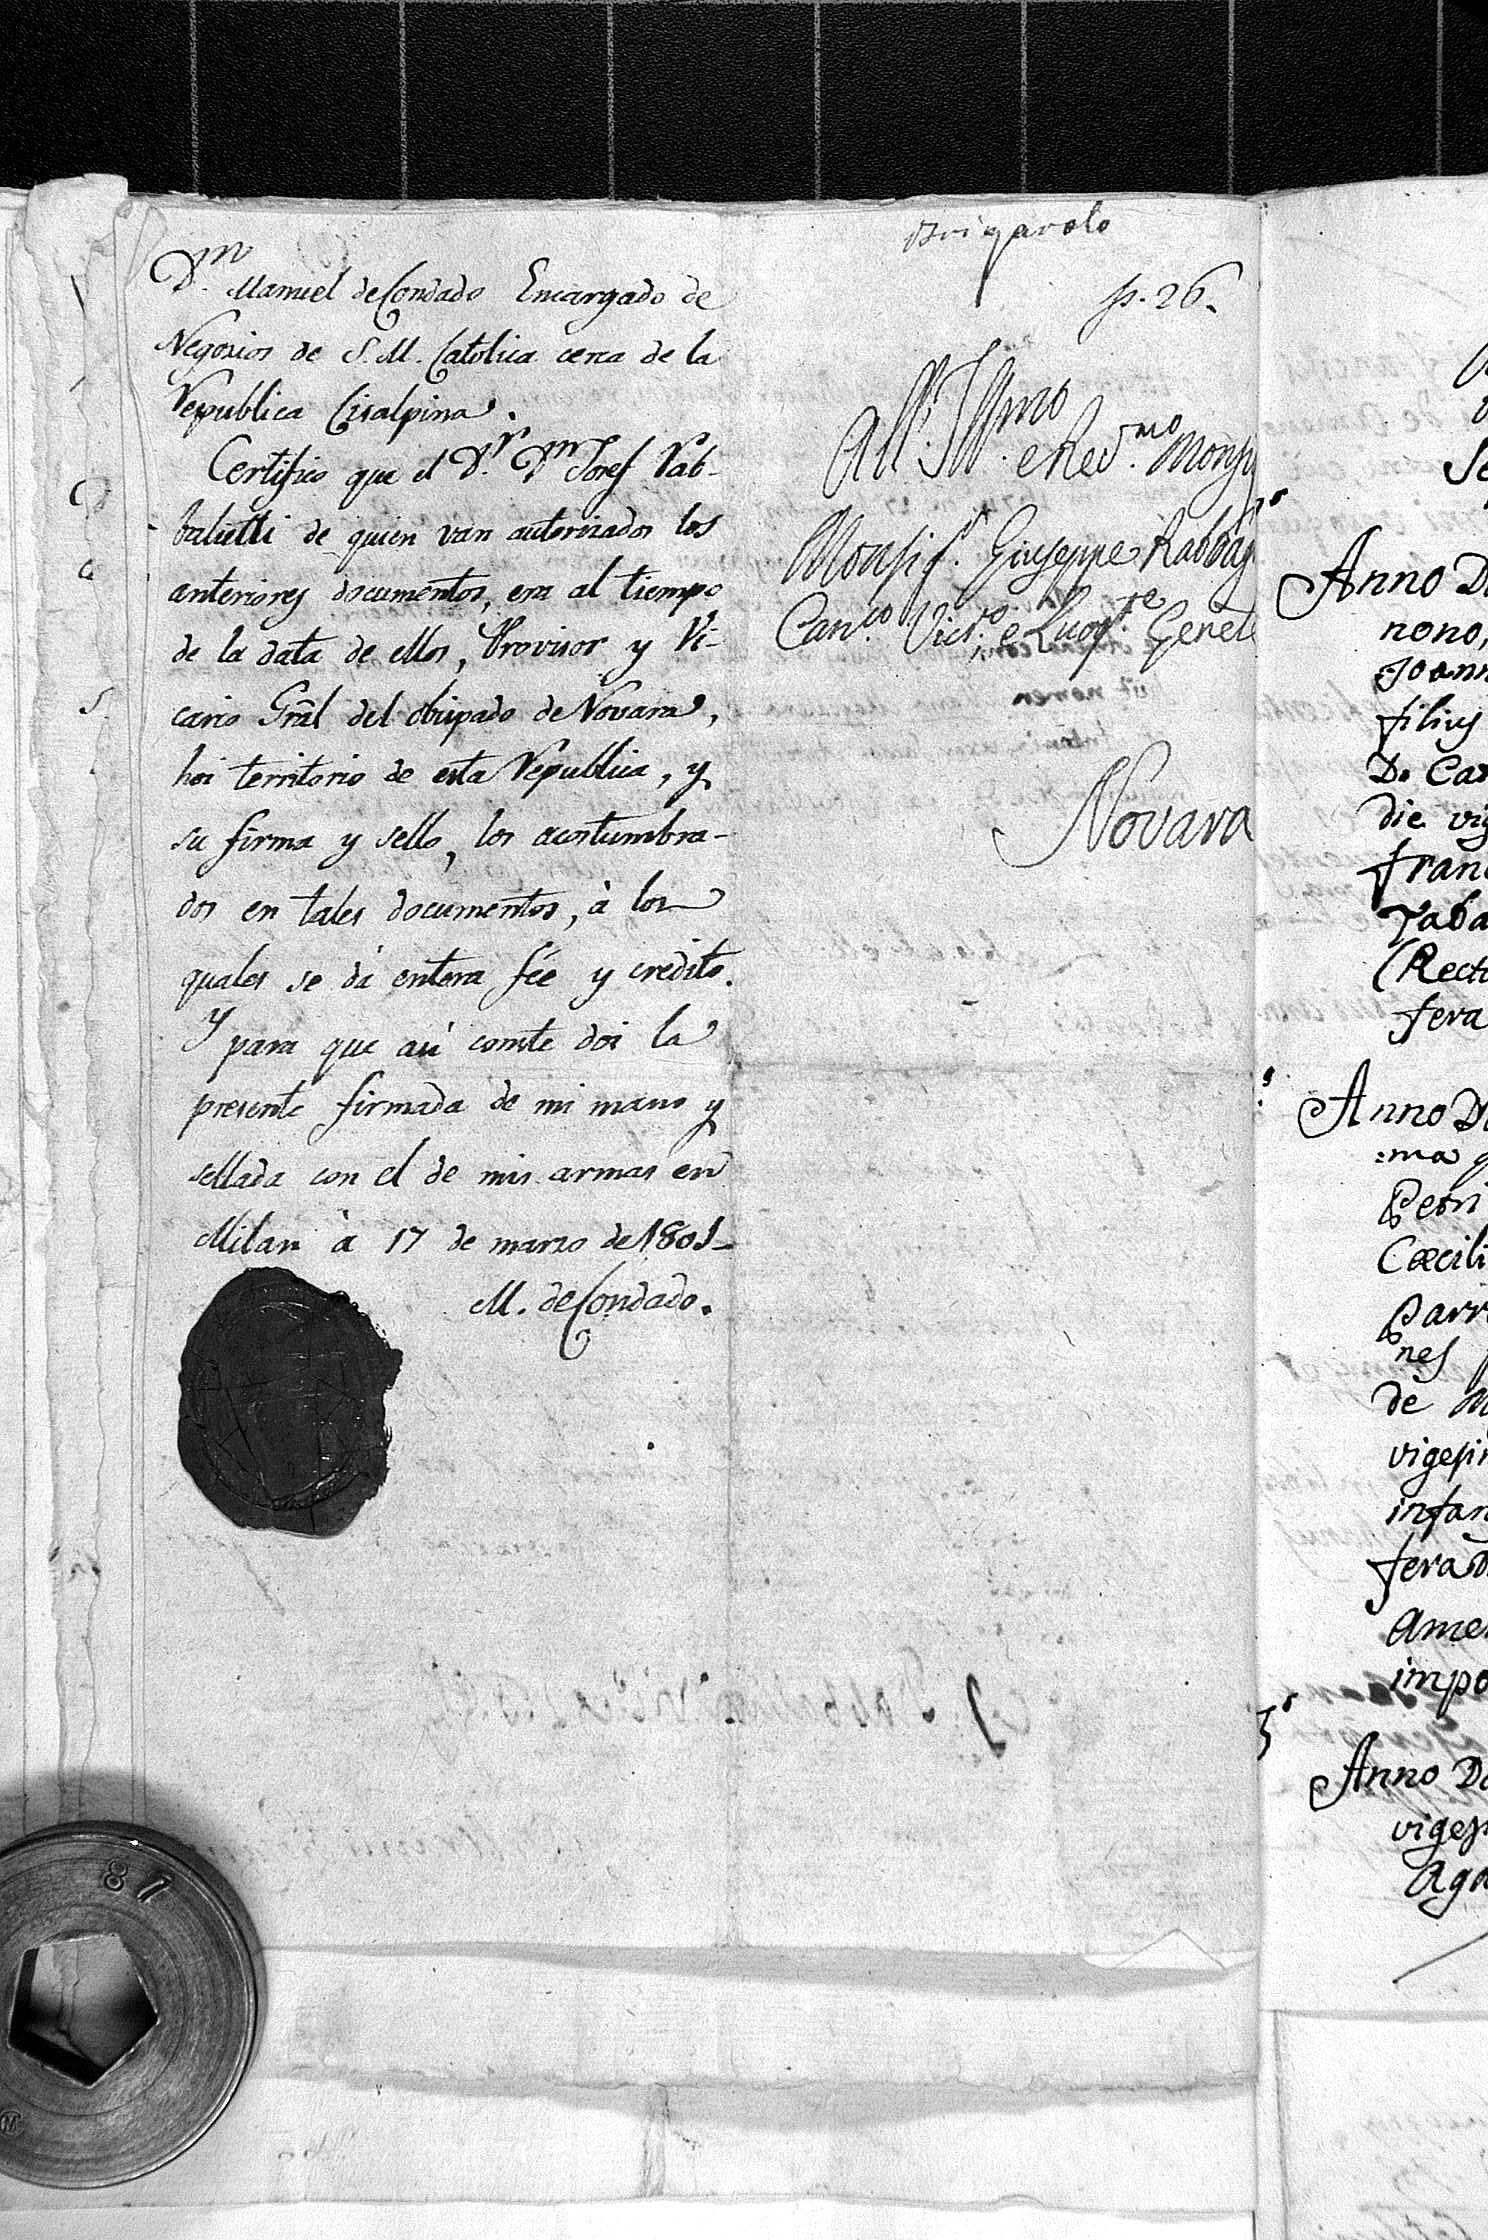 Dn. Manuel de Condado Encargado de
Negozios de S. M. Catolica cerca de la
Republica Cisalpina.
Certifico que el Dr. Dn Josef Rab-
balietti de quien van autorizados los
anteriores documentos, era al tiempo
de la data de ellos, Provisor y Vi-
cario Grãl del obispado de Novara,
hoi territorio de esta Republica, y
su firma y sello, los acostumbra-
dos en tales documentos, à los
quales se dá entera fée y credito.
Y para que asi conste doi la
presente firmada de mi mano y
sellada con el de mis armas en
Milan à 17 de marzo de 1801_
M. de Condado.
p. 26.
All' Illmo e Red.mo Monsig
Monsig.r Giuseppe Rabbag
Can.co Vic.rio e Luog.te Genele
Novara
Anno D
nono,
Joann
filius
D. Car
die vig
Franc
Taba
(Recto
fera
Anno D
:ma q
Petri
Cæcili
Parr
nes
de M
vigesim
infan
fera D
Amer
impo
Anno Do
viges
Aga
87